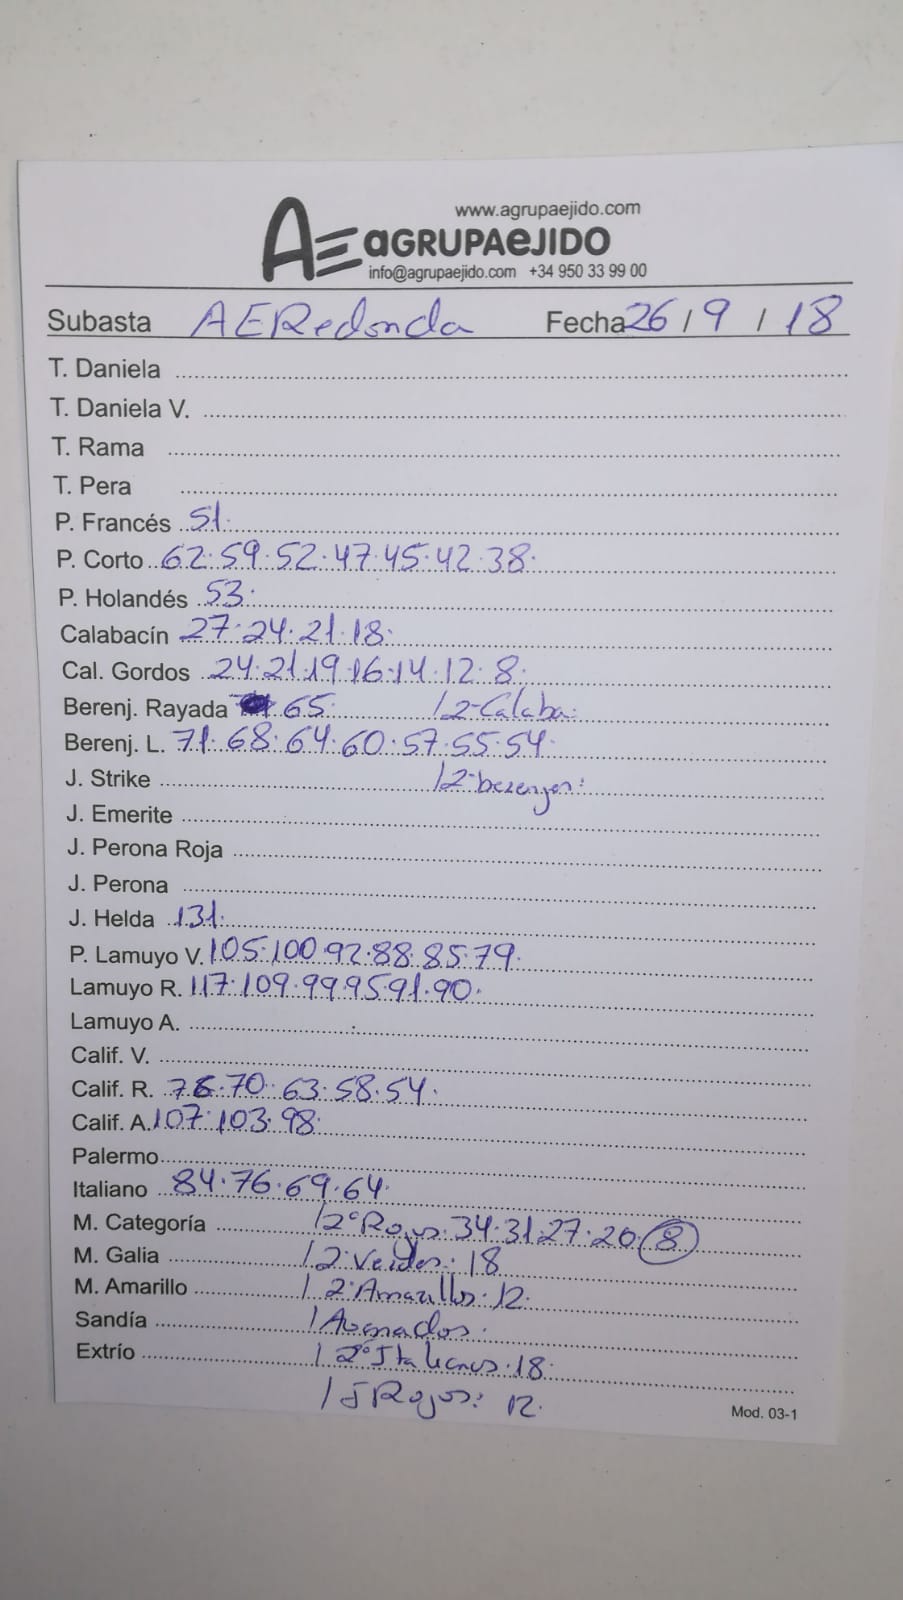 www.agrupaejido.com
AE aGRUPAeJIDO
info@agrupaejido.com +34 950 33 99 00
Subasta AERedonda Fecha 26 / 9 / 18
T. Daniela
T. Daniela V.
T. Rama
T. Pera
P. Francés 51.
P. Corto 62.59.52.47.45.42.38.
P. Holandés 53.
Calabacín 27.24.21.18.
Cal. Gordos 24.21.19.16.14.12.8.
Berenj. Rayada 65. /2-Calaba:
Berenj. L. 71.68.64.60.57.55.54.
J. Strike /2-berenjes:
J. Emerite
J. Perona Roja
J. Perona
J. Helda 131.
P. Lamuyo V. 105.100.92.88.85.79.
Lamuyo R. 117.109.99.95.91.90.
Lamuyo A.
Calif. V.
Calif. R. 76.70.63.58.54.
Calif. A. 107.103.98.
Palermo
Italiano 84.76.69.64.
M. Categoría /2º Rojos.34.31.27.20.8
M. Galia /2-Verdes: 18
M. Amarillo /2ºAmarillos.12.
Sandía /Asenados.
Extrío /2ºItalianos.18.
/J Rojos: 12.
Mod. 03-1